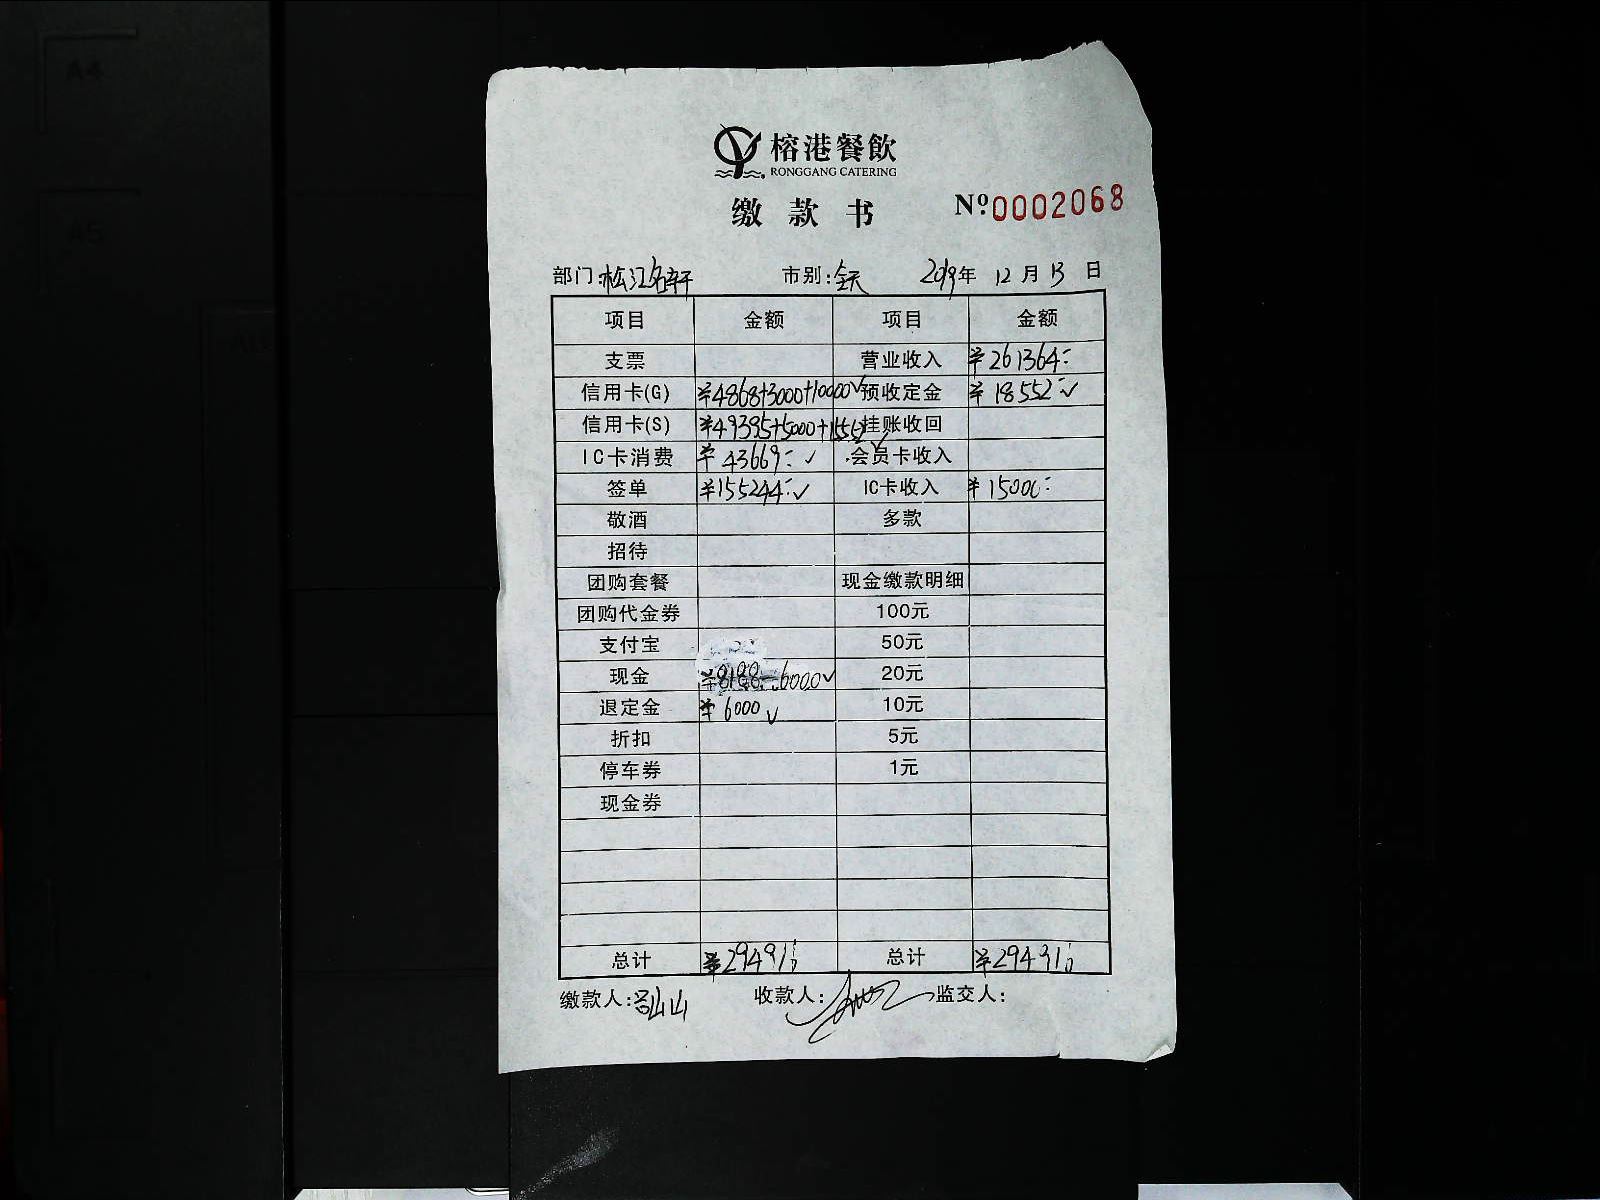 A4
A5
榕港餐飲
RONGGANG CATERING
缴款书 Nº.0002068
部门:松江名轩 市别:全天 2019年 12月 13日
项目 金额 项目 金额
支票 营业收入 ¥261364-
信用卡(G) ¥4868+3000+10000√ 预收定金 ¥18552-√
信用卡(S) ¥49395+5000+1552√ 挂账收回
IC卡消费 ¥43669-√ 会员卡收入
签单 ¥155244-√ IC卡收入 ¥15000-
敬酒 多款
招待
团购套餐 现金缴款明细
团购代金券 100元
支付宝 50元
现金 ¥8188-6000√ 20元
退定金 ¥6000√ 10元
折扣 5元
停车券 1元
现金券
总计 ¥294916 总计 ¥294916
缴款人:吕山山 收款人: 监交人: